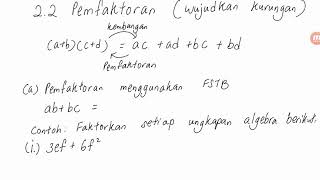 2.2 Pemfaktoran (wujudkan kurungan)
kembangan
(a+b)(c+d) = ac + ad + bc + bd
Pemfaktoran
(a) Pemfaktoran menggunakan FSTB
ab+bc =
Contoh: Faktorkan setiap ungkapan algebra berikut.
(i.) 3ef + 6f²